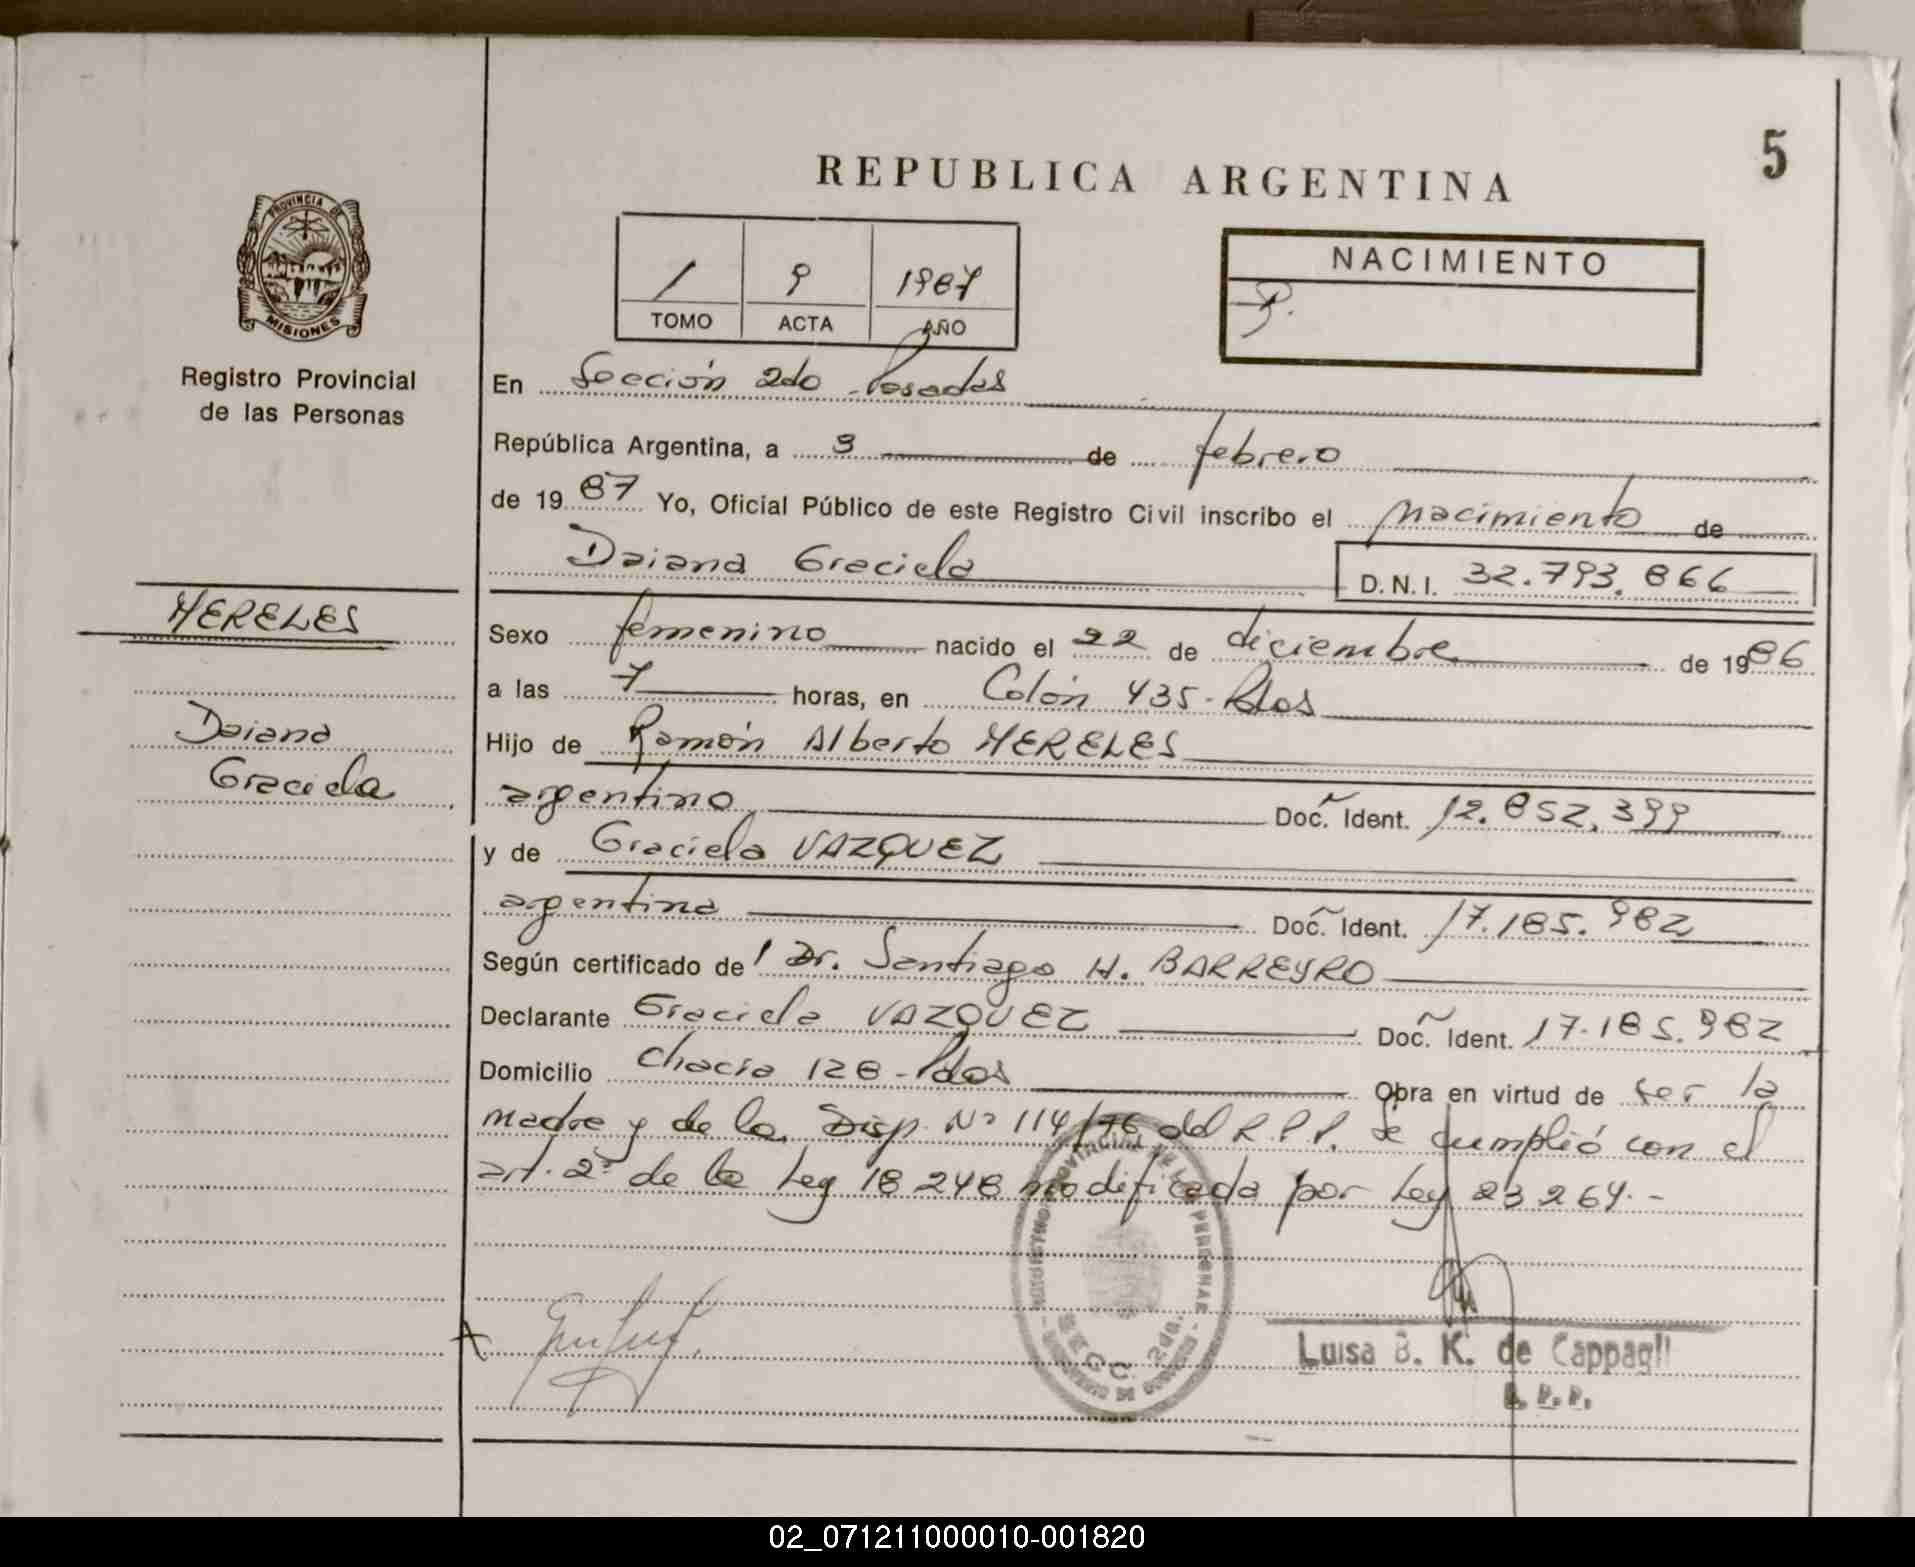 5
REPUBLICA ARGENTINA
PROVINCIA DE
MISIONES
Registro Provincial
de las Personas
1 9 1987
TOMO ACTA AÑO
NACIMIENTO
En Sección 2do Posadas
República Argentina, a 3 de febrero
de 1987 Yo, Oficial Público de este Registro Civil inscribo el nacimiento de
Daiana Graciela D.N.I. 32.793.866
MERELES
Daiana
Graciela
Sexo femenino nacido el 22 de diciembre de 1986
a las 7 horas, en Colón 435 - Pdas
Hijo de Ramón Alberto MERELES
argentino Doc. Ident. 12.852.399
y de Graciela VAZQUEZ
argentina Doc. Ident. 17.185.982
Según certificado de l Dr. Santiago H. BARREYRO
Declarante Graciela VAZQUEZ Doc. Ident. 17.185.982
Domicilio chacra 128 - Pdas Obra en virtud de ser la
madre y de la Disp. Nº 114/76 del R.P.P. Se cumplió con el
art. 2º de la Ley 18248 modificada por Ley 23264.-
Luisa B. K. de Cappagli
02_071211000010-001820